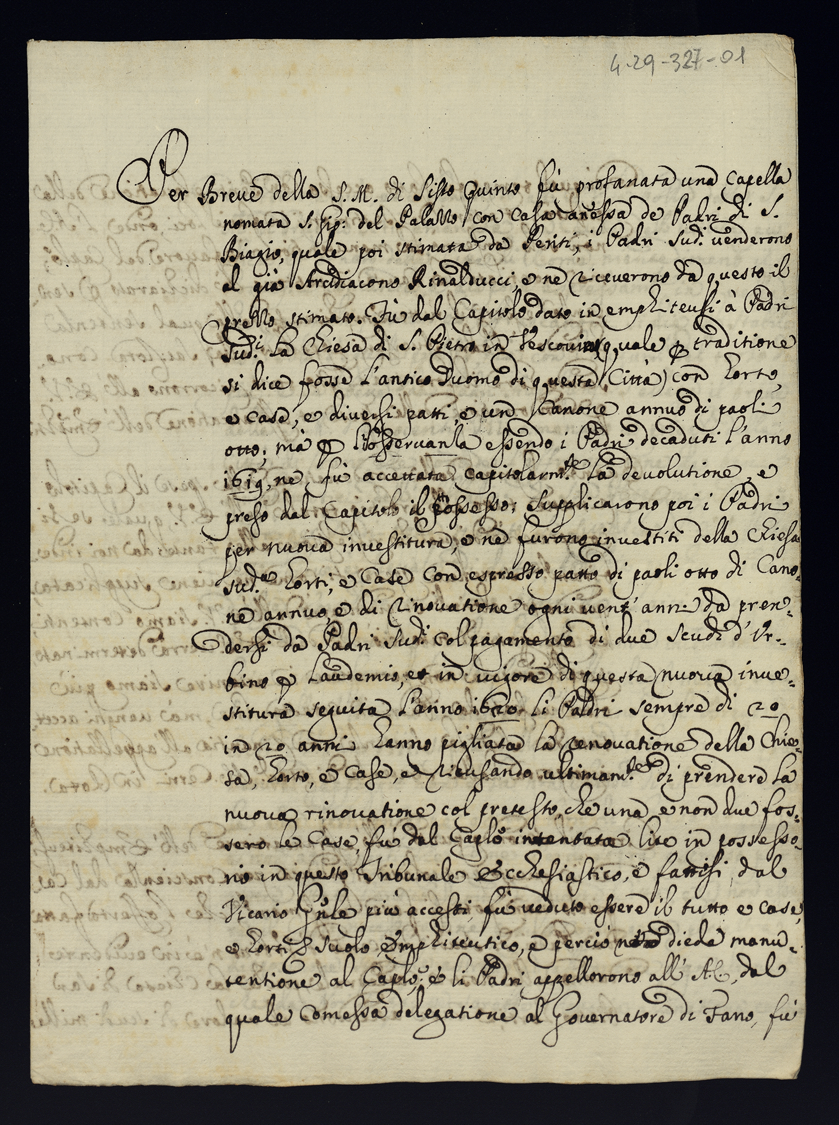 4-29-327-01
Per Breve della S. M. di Sisto Quinto fù profanata una Capella
nomata S. Gio: del Palazzo con casa anessa de Padri di S.
Biagio, quale poi stimata da Periti, i Padri sud.i venderono
al già Arcidiacono Rinalducci, e ne riceverono da questo il
prezzo stimato. Fù dal Capitolo dato in emphiteusi à Padri
sud.i la Chiesa di S. Pietro in Vescovia (quale p traditione
si dice fosse l'antico Duomo di questa Città) con horto,
e case, e diversi patti, e un Canone annuo di paoli
otto; mà p l'Inosservanza essendo i Padri decaduti l'anno
1619, ne fù accettata capitolarm.te la devolutione, e
preso dal Capitolo il possesso; supplicarono poi i Padri
per nuova investitura, e ne furono investiti della Chiesa
sud.a horti, e Case con espresso patto di paoli otto di Cano-
ne annuo, e di rinovatione ogni vent'anni da pren-
dersi da Padri sud.i col pagamento di due scudi d'Ur-
bino p laudemio, et in vigore di questa nuova inve-
stitura seguita l'anno 1620 li Padri sempre di 20
in 20 anni hanno pigliata la renovatione della Chie-
sa, horto, e case, e ricusando ultimam.te di prendere la
nuova rinovatione col pretesto, che una, e non due fos-
sero le Case, fù dal Caplo intentata lite in possesso-
rio in questo Tribunale Ecclesiastico, e fattisi dal
Vicario Gnle più accessi fù veduto essere il tutto e case,
e horti suolo Emphiteutico, e perciò diede manu-
tentione al Caplo, e li Padri appellorono all' AC, dal
quale Comessa delegatione al Governatore di Fano, fù